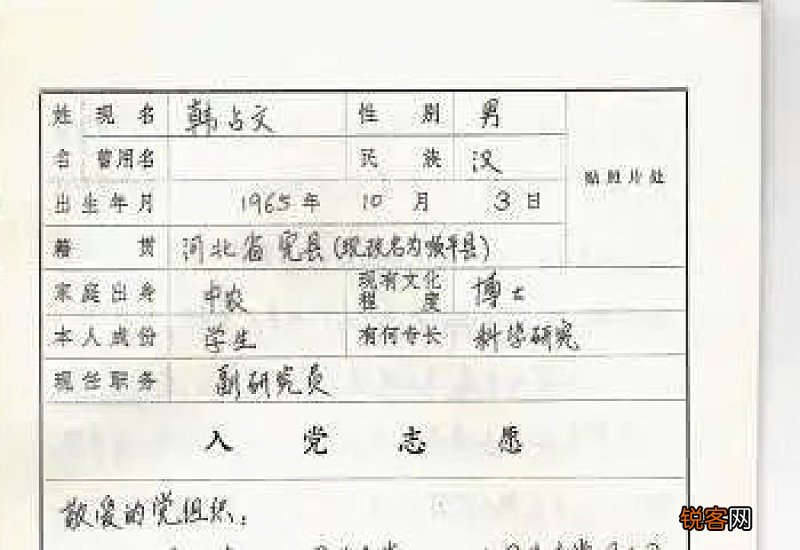 姓 现名 韩占文 性别 男
名 曾用名 民族 汉
贴照片处
出生年月 1965年 10月 3日
籍贯 河北省完县(现改名为顺平县)
家庭出身 中农 现有文化程度 博士
本人成份 学生 有何专长 科学研究
现任职务 副研究员
入党志愿
敬爱的党组织:
锐客网